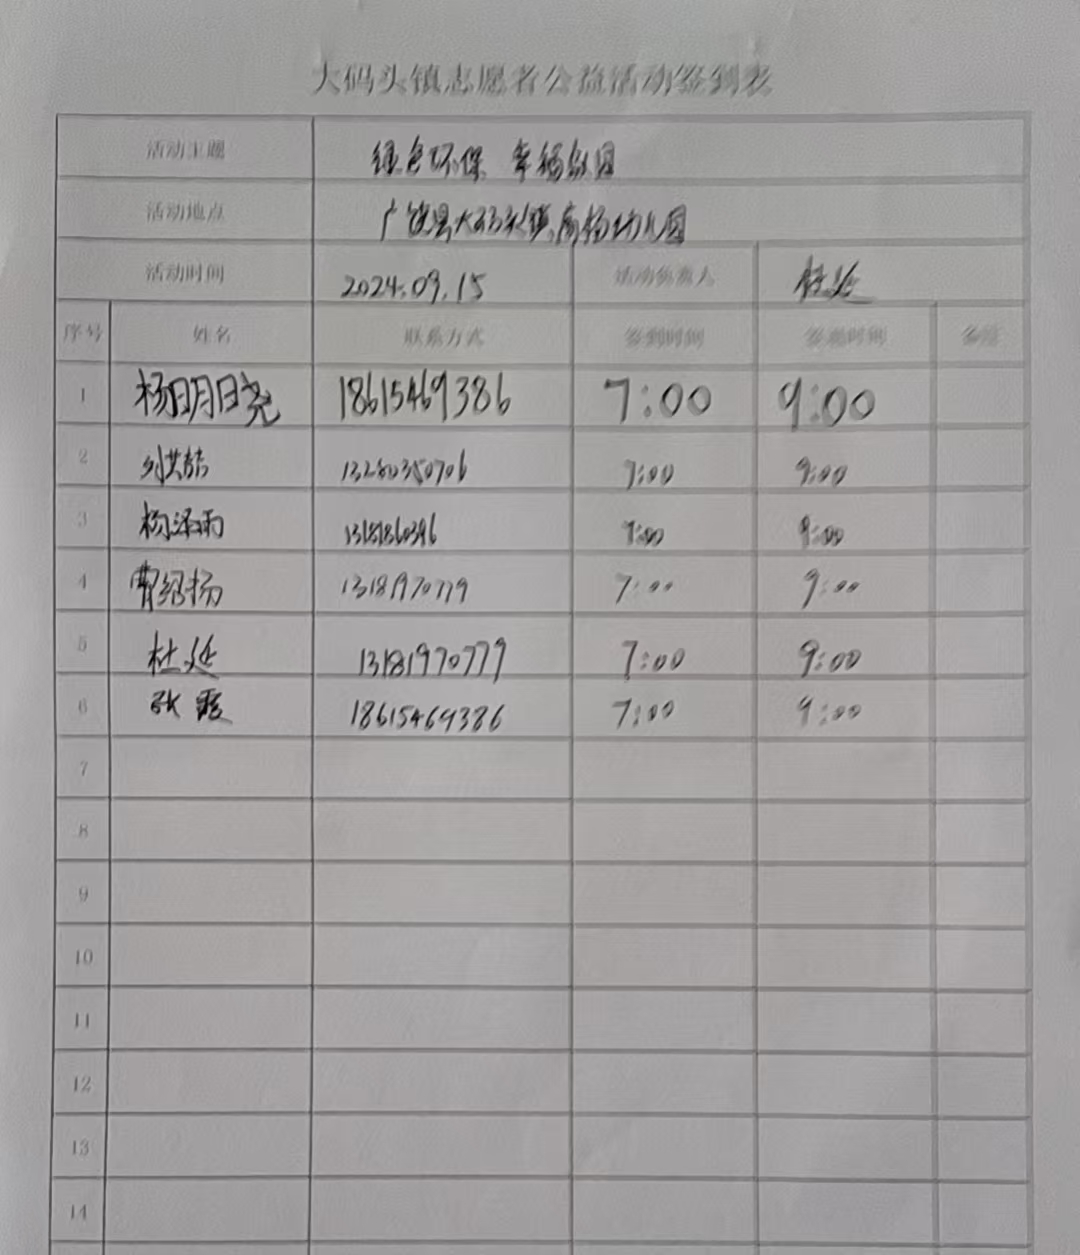 大码头镇志愿者公益活动签到表
活动主题 绿色环保 幸福家园
活动地点 广饶县大码头镇高杨幼儿园
活动时间 2024.09.15 活动负责人 杜延
序号 姓名 联系方式 签到时间 签离时间 备注
1 杨明晓 18615469386 7:00 9:00
2 刘其喆 13280350706 7:00 9:00
3 杨泽雨 7:00 9:00
4 曹绍扬 13181970779 7:00 9:00
5 杜延 13181970777 7:00 9:00
6 张霞 18615469386 7:00 9:00
7
8
9
10
11
12
13
14